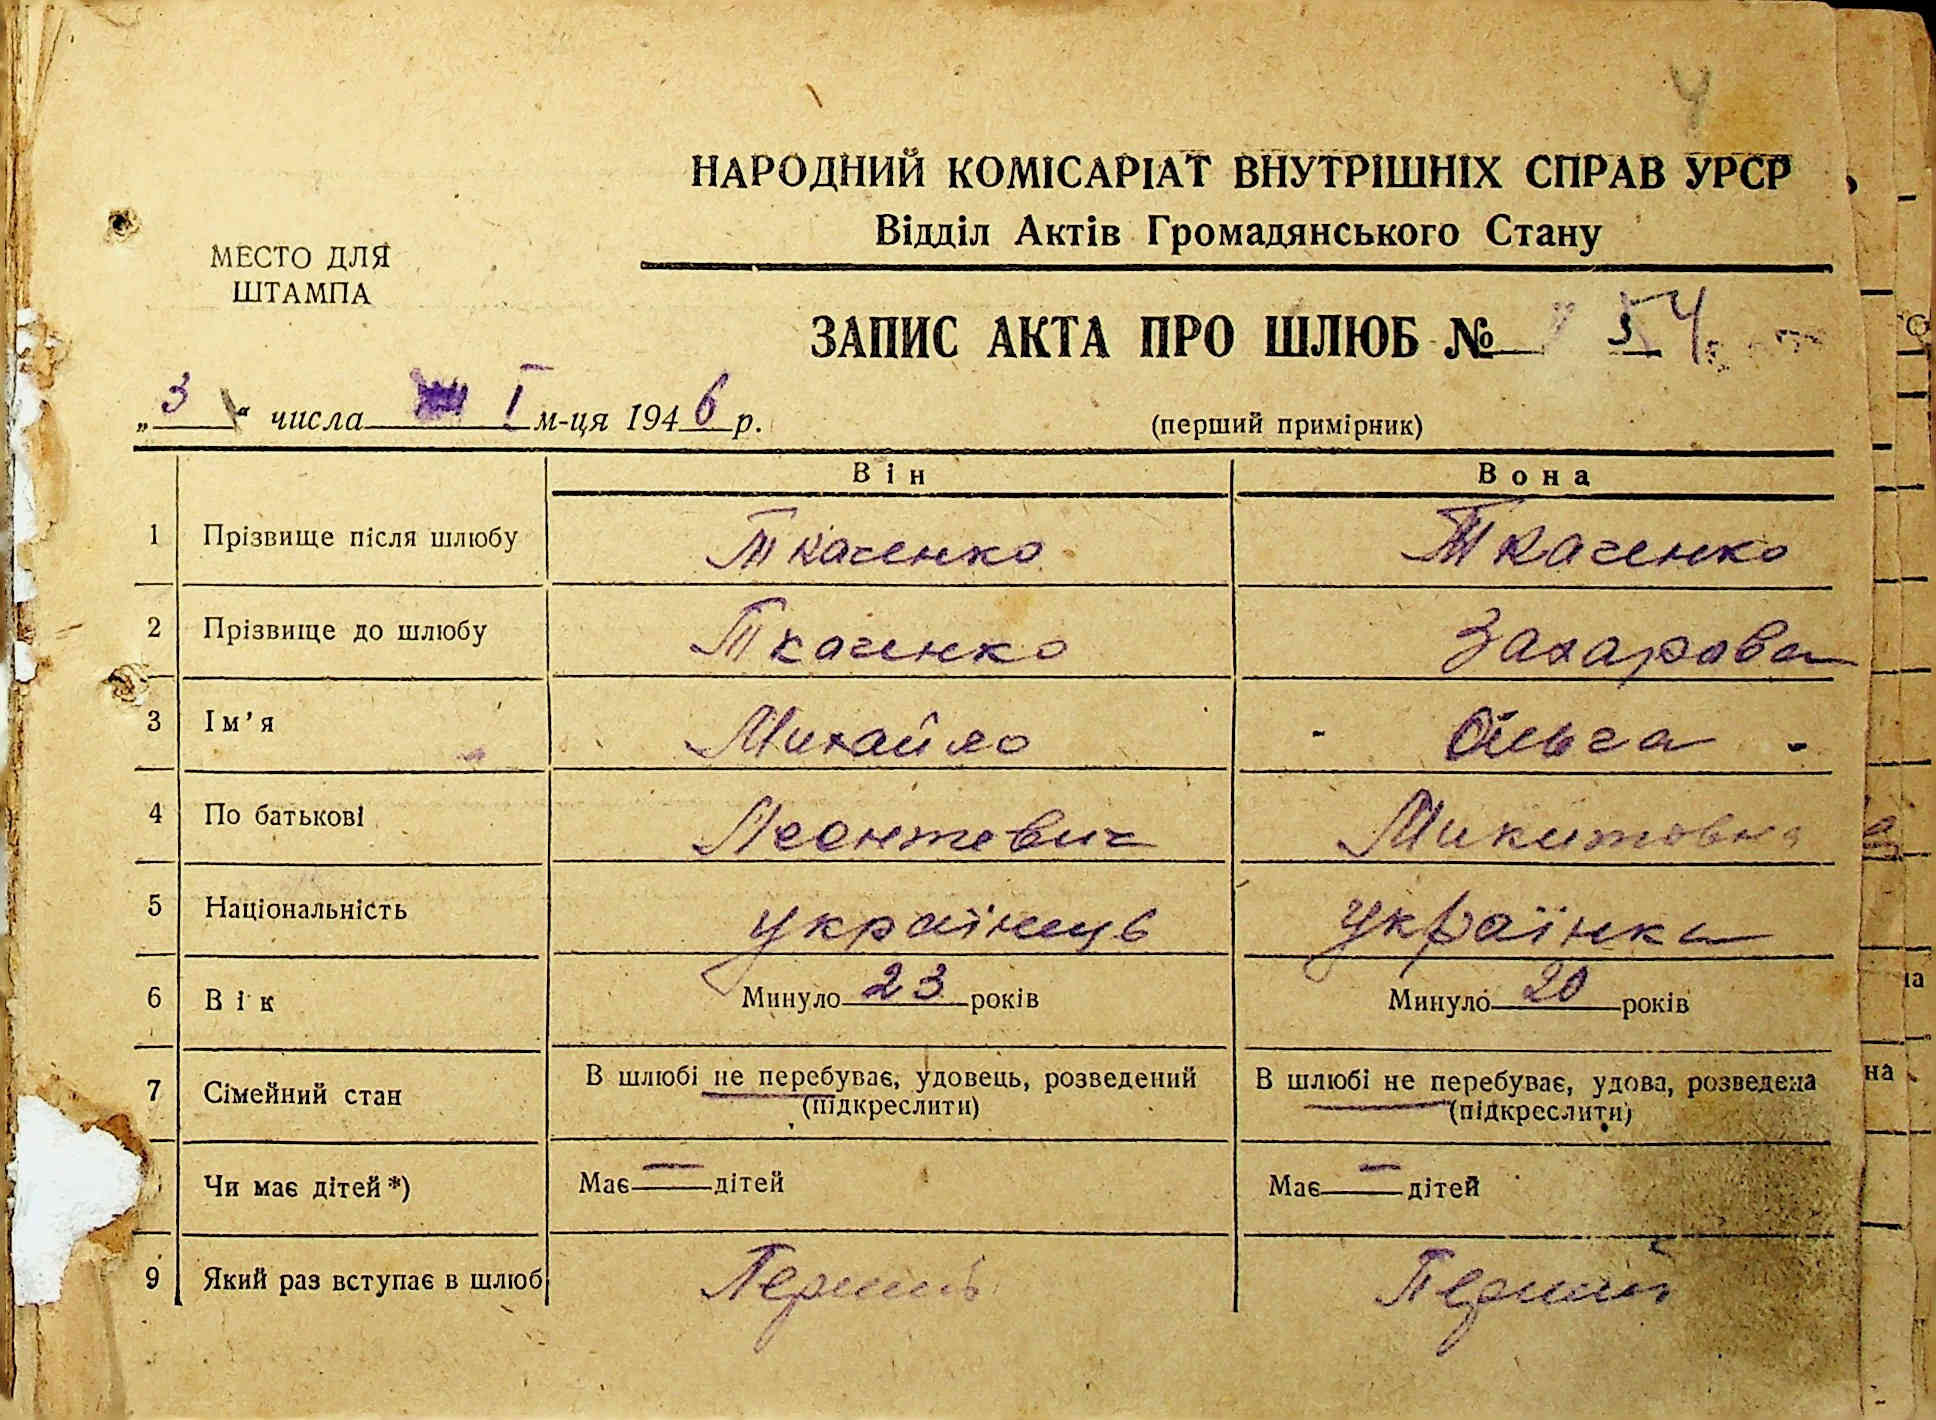 4
НАРОДНИЙ КОМІСАРІАТ ВНУТРІШНІХ СПРАВ УРСР
Відділ Актів Громадянського Стану
МЕСТО ДЛЯ
ШТАМПА
ЗАПИС АКТА ПРО ШЛЮБ № 54
„3“ числа I м-ця 1946 р.
(перший примірник)
Він Вона
1 Прізвище після шлюбу Ткаченко Ткаченко
2 Прізвище до шлюбу Ткаченко Захарова
3 Ім’я Михайло Ольга
4 По батькові Леонтевич Микитовна
5 Національність українець українка
6 Вік Минуло 23 років Минуло 20 років
7 Сімейний стан В шлюбі не перебуває, удовець, розведений (підкреслити) В шлюбі не перебуває, удова, розведена (підкреслити)
Чи має дітей*) Має — дітей Має — дітей
9 Який раз вступає в шлюб Перший Перший